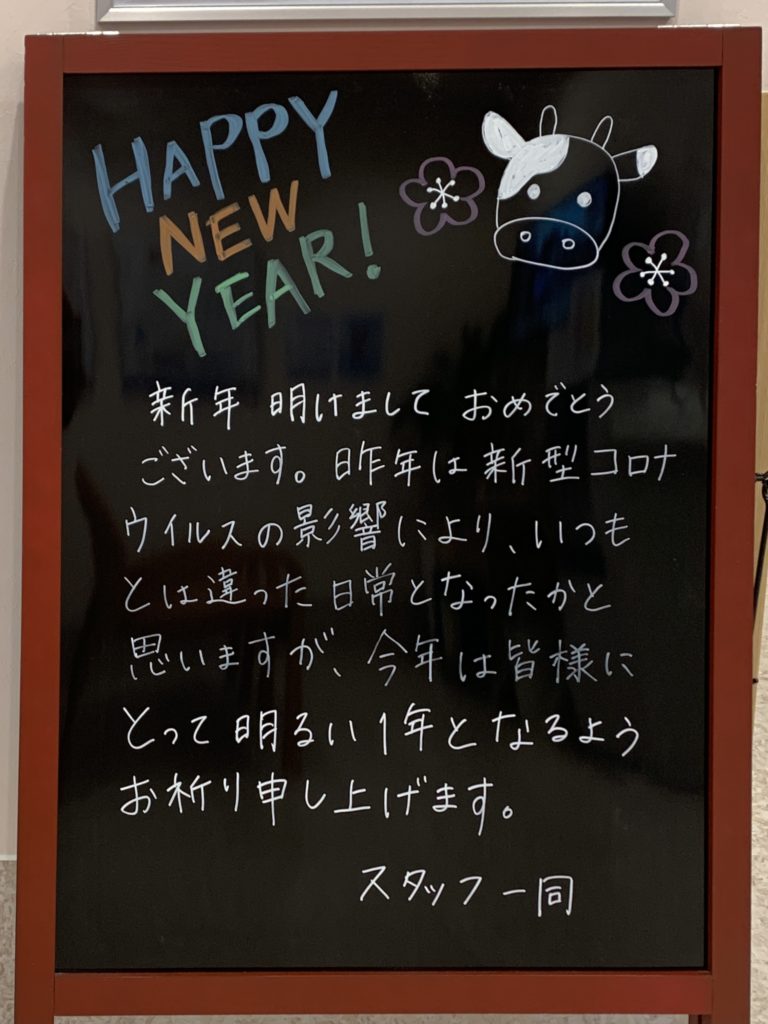 HAPPY
NEW
YEAR!
新年 明けまして おめでとう
ございます。昨年は新型コロナ
ウイルスの影響により、いつも
とは違った日常となったかと
思いますが、今年は皆様に
とって明るい1年となるよう
お祈り申し上げます。
スタッフ一同